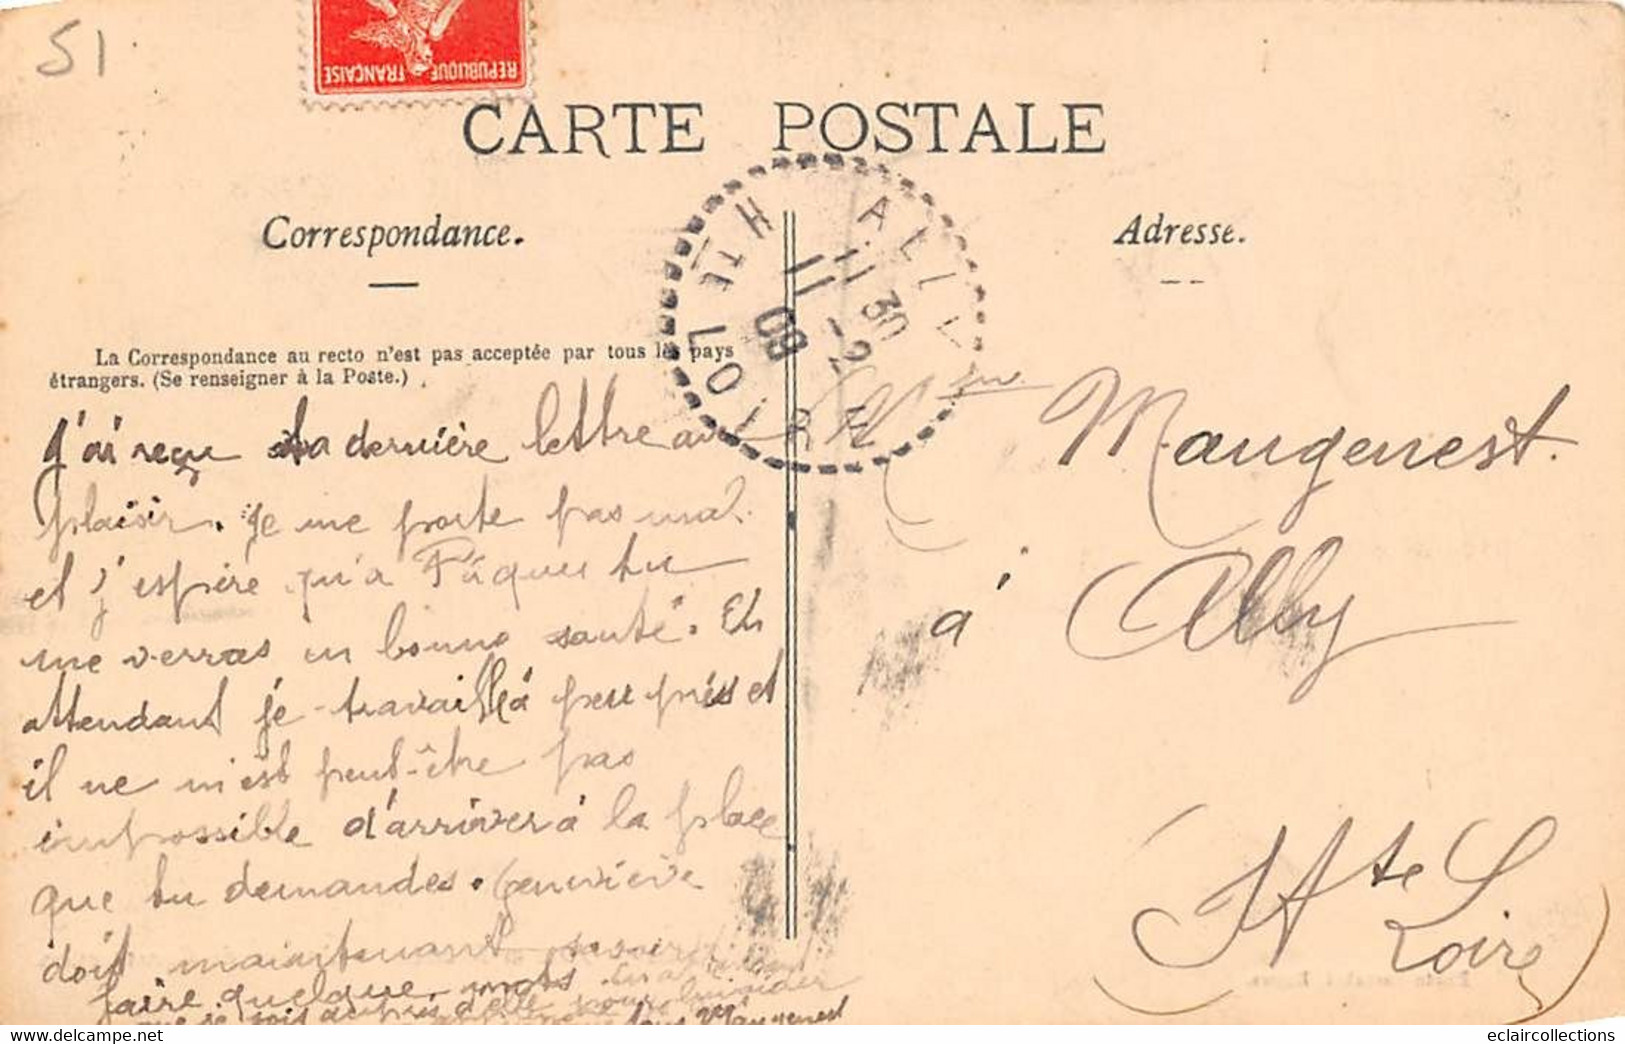 51
REPUBLIQUE FRANÇAISE
CARTE POSTALE
Correspondance.
Adresse.
ALLY
11 30
11 -2
09
HTE LOIRE
La Correspondance au recto n'est pas acceptée par tous les pays
étrangers. (Se renseigner à la Poste.)
J'ai reçu ta dernière lettre avec
plaisir. Je me porte pas mal
et j'espère qu'à Pâques tu
me verras en bonne santé. En
attendant je travaille à peu près et
il ne m'est peut-être pas
impossible d'arriver à la place
que tu demandes. Geneviève
doit maintenant savoir
faire quelque mots
que je sois auprès d'elle pour
Maugenest
Maugenest
à Ally
Hte
Loire
eclaircollections